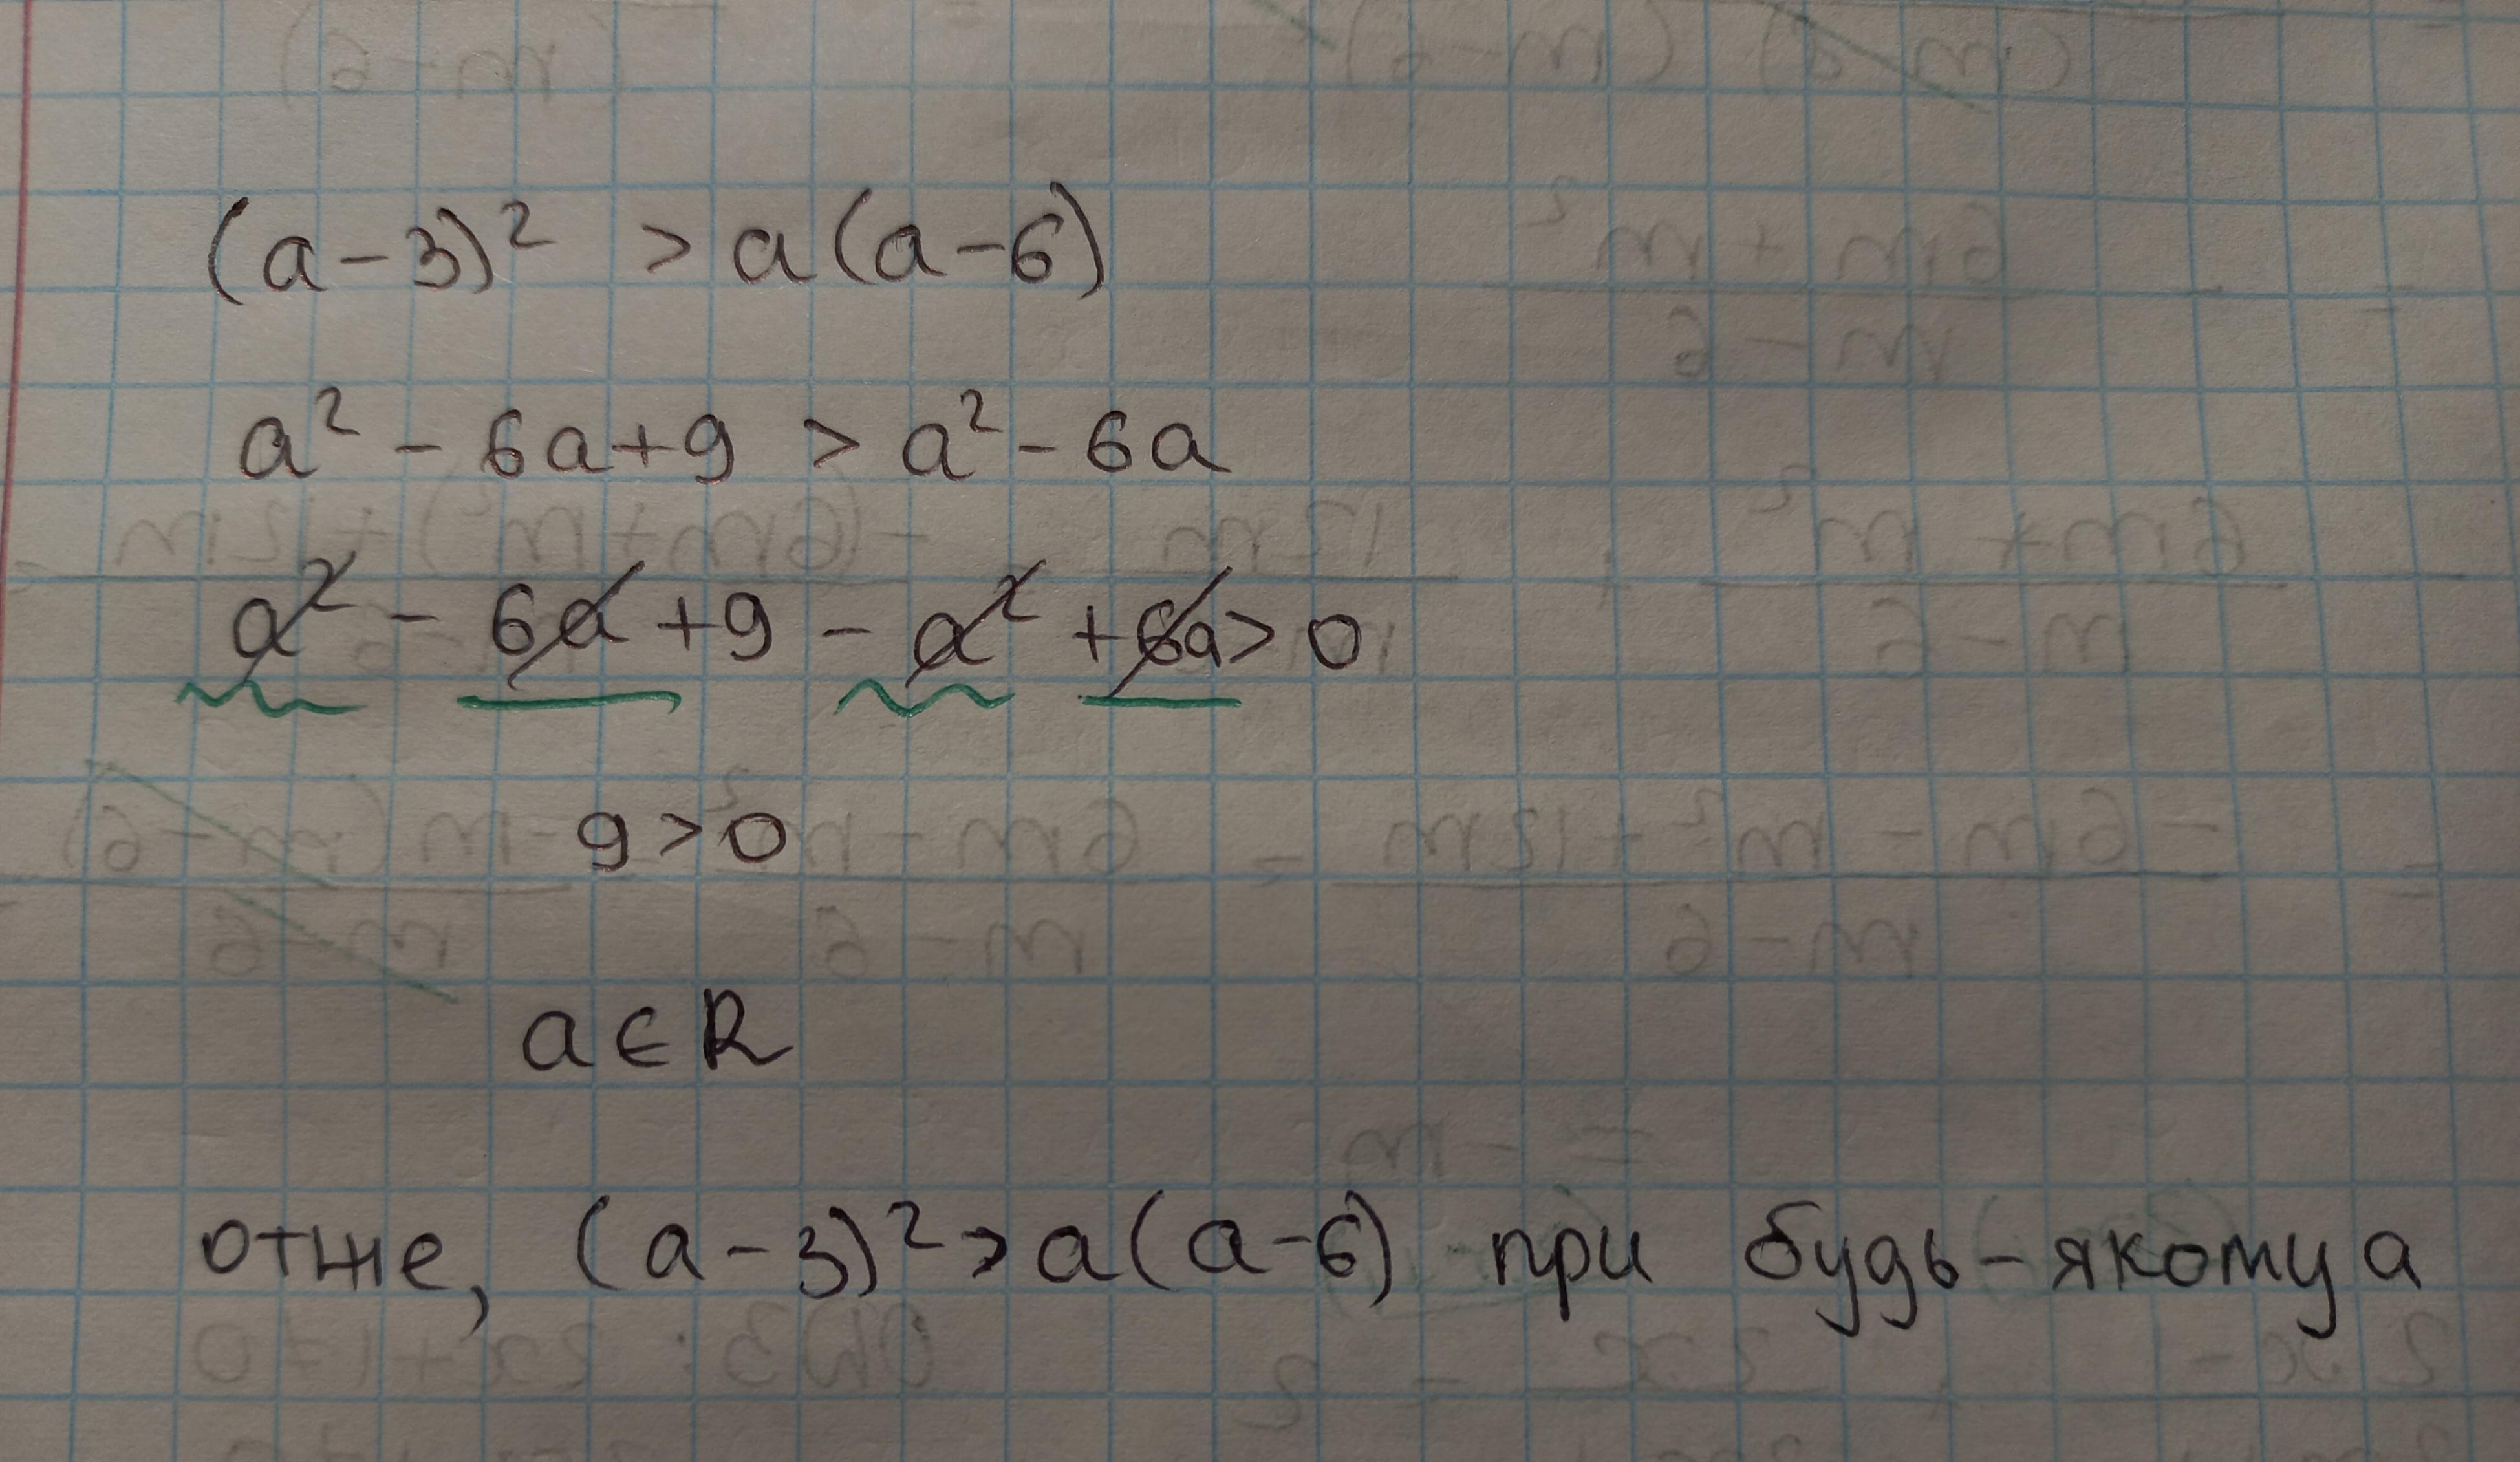 (a-3)² > a(a-6)
a² - 6a+9 > a² - 6a
a² - 6a +9 - a² +6a> 0
9>0
a∈R
отже, (a-3)²>a(a-6) при будь-якому a